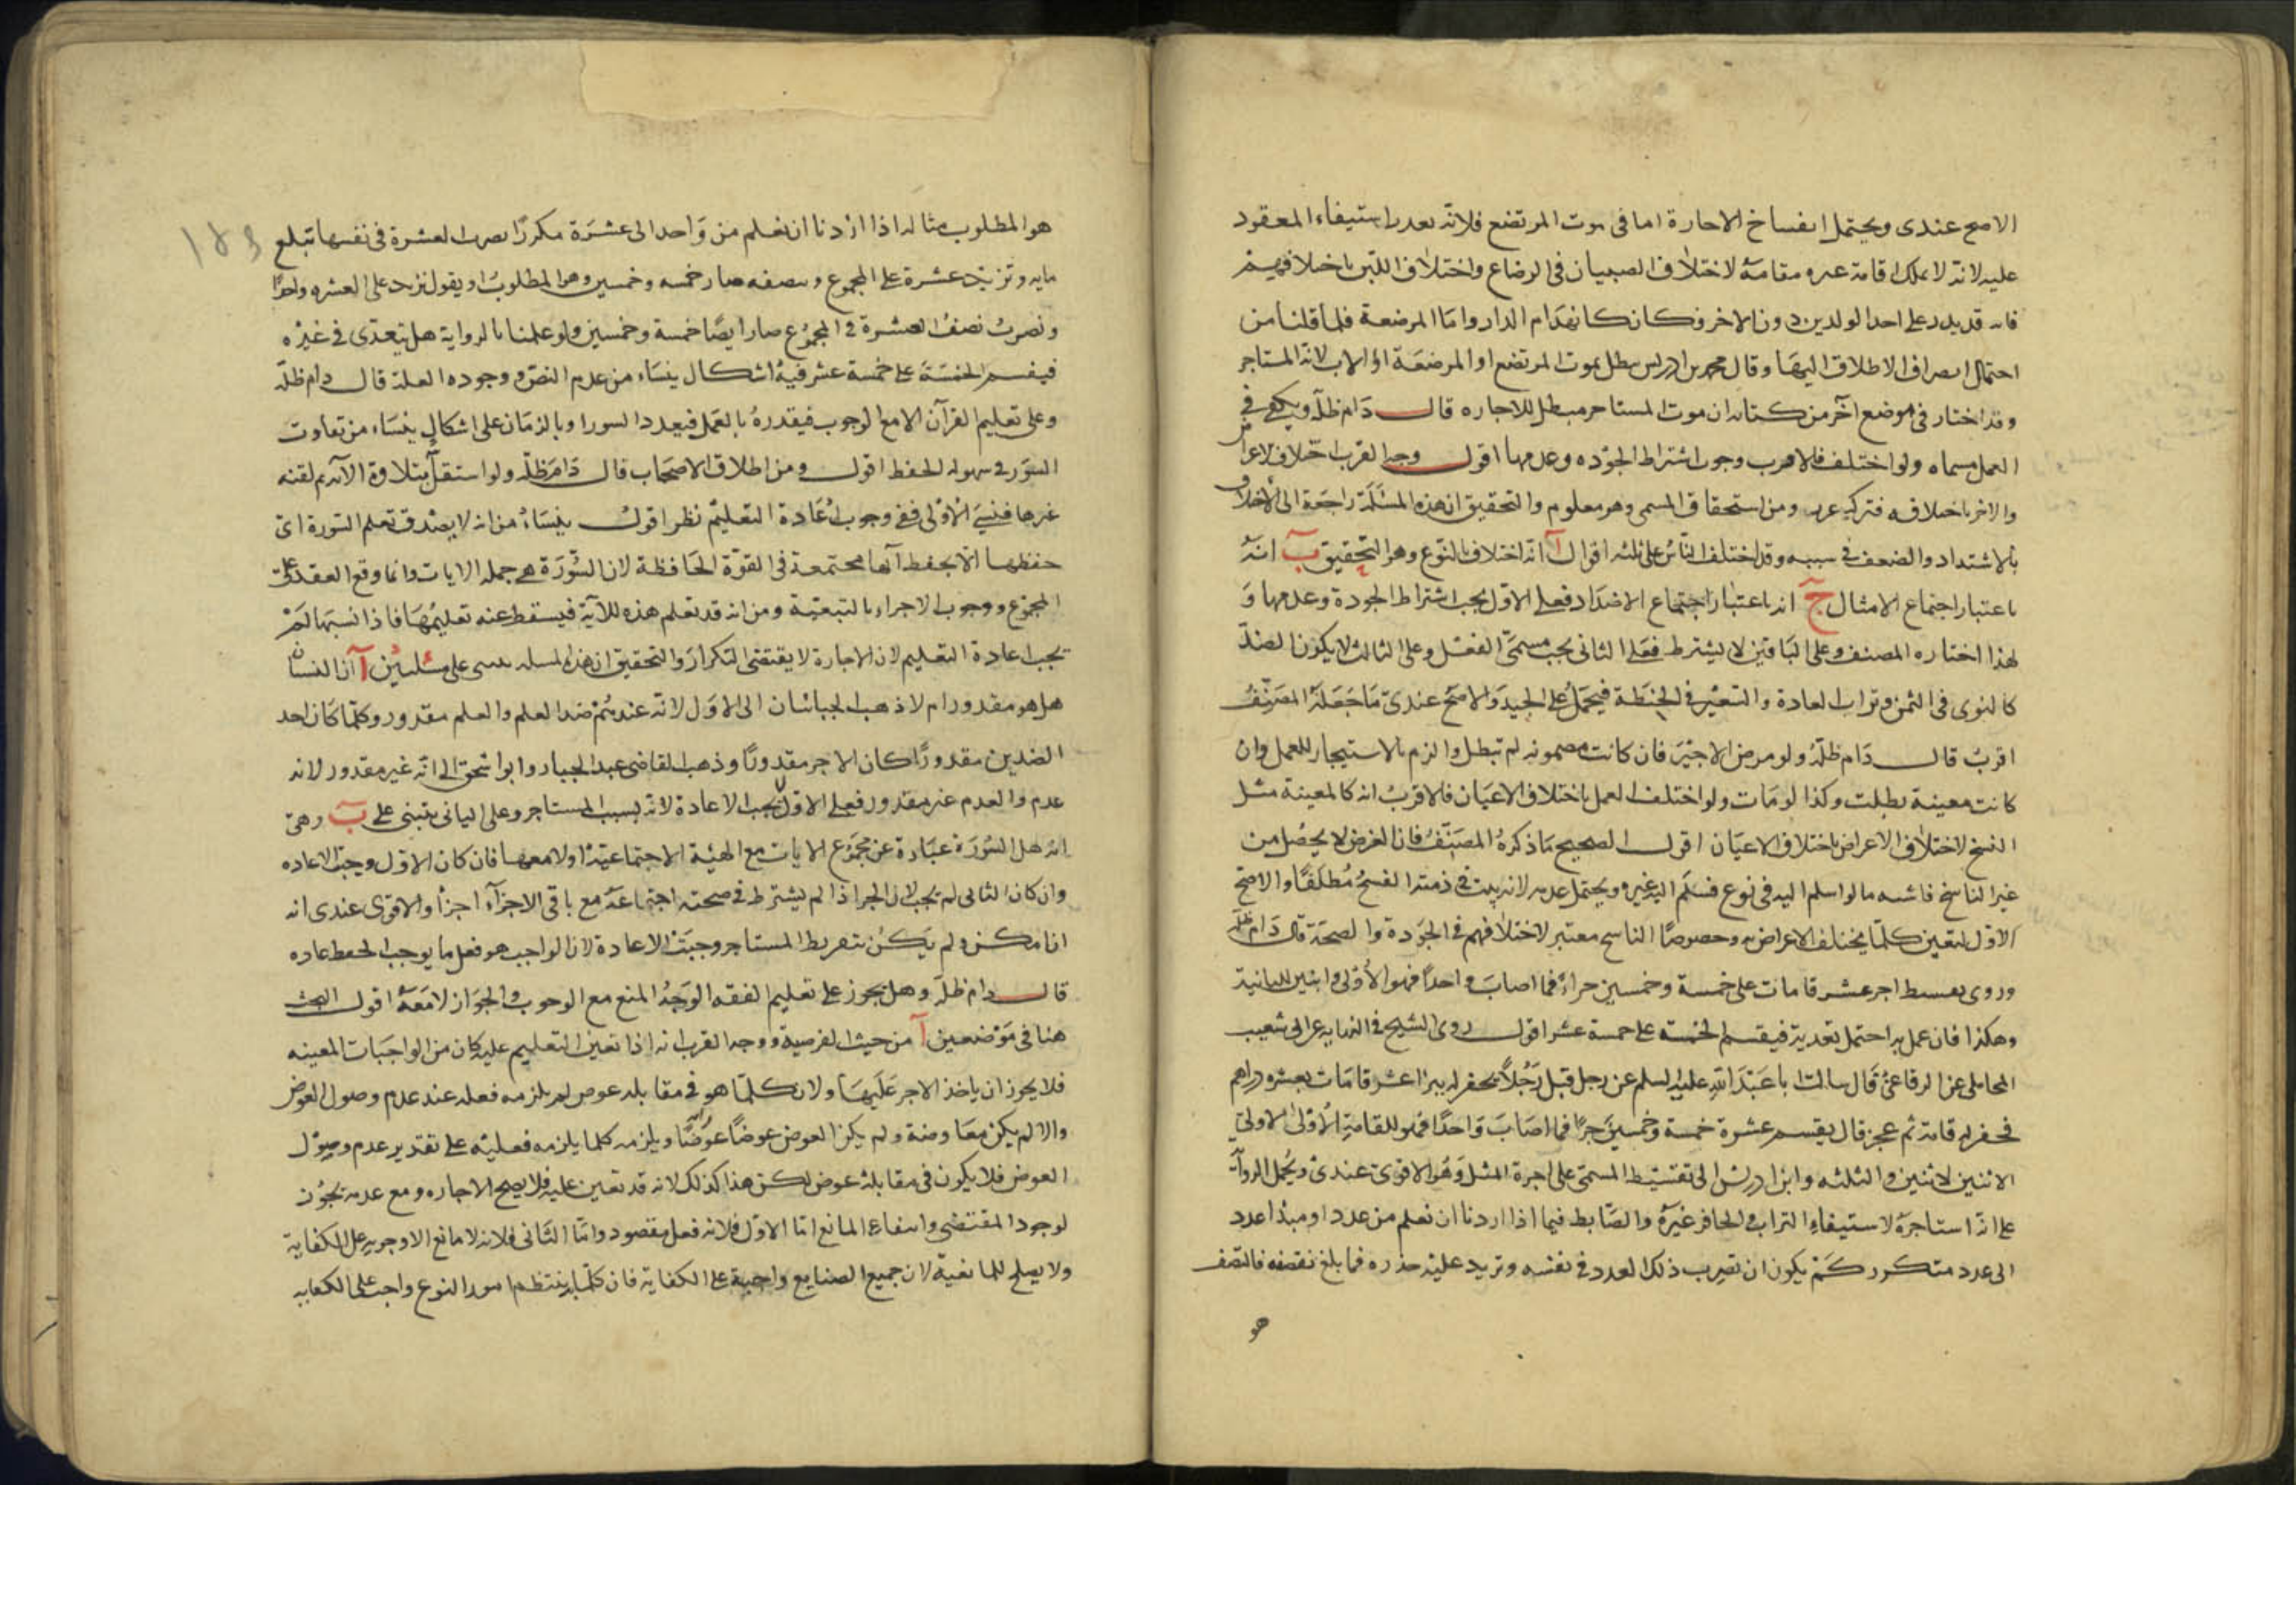 الاصح عندى ويحتمل انفساخ الاجارة اما فى موت المرتضع فلانه تعذر استيفاء المعقود
عليه لانه لا يملك اقامة غيره مقامه لاختلاف الصبيان فى الرضاع واختلاف اللبن باختلافهم
فانه قد يدر على احد الولدين دون الاخر فكان كانهدام الدار واما المرضعة فلما قلنا من
احتمال انصراف الاطلاق اليها وقال محمد بن ادريس يبطل بموت المرتضع او المرضعة او الاب لانه المستاجر
وقد اختار فى موضع اخر من كتابه ان موت المستاجر مبطل للاجاره قال دام ظله ويكفى فى
العمل مسماه ولو اختلف فالاقرب وجوب اشتراط الجوده وعدمها اقول وجه القرب اختلاف الاغراض
والاجر باختلافه فتركه غرر ومن استحقاق المسمى وهو معلوم والتحقيق ان هذه المسئلة راجعة الى الاختلاف
بالاشتداد والضعف فى سببه وقد اختلف الناس على ثلثه اقوال آ انه اختلاف بالنوع وهو التحقيق ب انه
باعتبار اجتماع الامثال ج انه باعتبار اجتماع الاضداد فعلى الاول يجب اشتراط الجودة وعدمها و
لهذا اختاره المصنف وعلى الباقين لا يشترط فعلى الثانى يجب مسمى الفعل وعلى الثالث لا يكون الضد
كالنوى فى الثمن وتراب العادة والشعير فى الحنطة فيحمل على الجيد والاصح عندى ما جعله المصنف
اقرب قال دام ظله ولو مرض الاجير فان كانت مضمونه لم تبطل والزم بالاستيجار للعمل وان
كانت معينة بطلت وكذا لو مات ولو اختلف العمل باختلاف الاعيان فالاقرب انه كالمعينة مثل
النسخ لاختلاف الاغراض باختلاف الاعيان اقول الصحيح ما ذكره المصنف فان الغرض لا يحصل من
غير الناسخ فاشبه ما لو اسلم اليه فى نوع فسلم اليه غيره ويحتمل عدمه لانه يثبت فى ذمته الفسخ مطلقا والاصح
الاول لتعين كلما يختلف الاغراض به وخصوصا الناسخ معتبر لاختلافهم فى الجودة والصحة قال دام ظله
وروى تقسيط اجر عشر قامات على خمسة وخمسين جزءا فما اصاب واحدا فهو الاولى واثنين للثانية
وهكذا فان عمل به احتمل تعديته فيقسم الخمسة على خمسة عشر اقول روى الشيخ فى النهايه عن ابى شعيب
المحاملى عن الرفاعى قال سالت ابا عبد الله عليه السلم عن رجل قبل رجلا يحفر له بيرا عشر قامات بعشره دراهم
فحفر له قامة ثم عجز قال يقسم عشرة على خمسة وخمسين جزءا فما اصاب واحدا فهو للقامة الاولى
الاثنين لاثنين والثلثه وابن ادريس الى تقسيط المسمى على اجرة المثل وهو الاقوى عندى ويحمل الرواية
على انه استاجره لاستيفاء التراب والحافر غيره والضابط فيما اذا اردنا ان نعلم من عدد او مبدا عدد
الى عدد متكرر كم يكون ان تضرب ذلك العدد فى نفسه وتزيد عليه جذره فما بلغ نقصفه فالنصف
هو
هو المطلوب مثاله اذا اردنا ان نعلم من واحد الى عشرة مكررا نضرب العشرة فى نفسها تبلغ
مايه وتزيد عشرة على المجموع وننصفه صار خمسه وخمسين وهو المطلوب او يقول نزيد على العشره واحدا
ونضرب نصف العشرة فى المجموع صار ايضا خمسة وخمسين ولو علمنا بالرواية هل يتعدى فى غيره
فيقسم الخمسة على خمسة عشر فيه اشكال ينشاء من عدم النص ووجوده العلة قال دام ظله
وعلى تعليم القرآن الا مع الوجوب فيقدره بالعمل فيعدد السور او بالزمان على اشكال ينشاء من تفاوت
السور فى سهوله الحفظ اقول ومن اطلاق الاصحاب قال دام ظله ولو استقل بتلاوة الآيه ثم لقنه
غيرها فنسى الاولى ففى وجوب اعادة التعليم نظر اقول ينشاء من انه لا يصدق تعلم السورة اى
حفظها الا بحفظ آيها مجتمعة فى القوة الحافظة لان السورة هى جمله الايات وانما وقع العقد على
المجموع ووجوب الاجزاء بالتبعية ومن انه قد تعلم هذه الآية فيسقط عنه تعليمها فاذا نسيها لم
يجب اعادة التعليم لان الاجارة لا يقتضى التكرار والتحقيق ان هذه المسئله تبتنى على مسئلتين آ ان النسيان
هل هو مقدور ام لا ذهب الجبائيان الى الاول لانه عندهم ضد العلم والعلم مقدور وكلما كان احد
الضدين مقدورا كان الاخر مقدورا وذهب القاضى عبد الجبار وابو اسحق الى انه غير مقدور لانه
عدم والعدم غير مقدور فعلى الاول يجب الاعادة لانه بسبب المستاجر وعلى الثانى يبتنى على ب وهى
انه هل السورة عبارة عن مجموع الايات مع الهيئة الاجتماعية او لا معها فان كان الاول وجبت الاعاده
وان كان الثانى لم يجب لان الجزء اذا لم يشترط فى صحته اجتماعه مع باقى الاجزاء اجزأ والاقوى عندى انه
ان امكن ولم يكن بتفريط المستاجر وجبت الاعادة لان الواجب هو فعل ما يوجب الحفظ عاده
قال دام ظله وهل يجوز على تعليم الفقه الوجه المنع مع الوجوب والجواز لا معه اقول البحث
هنا فى موضعين آ من حيث الفرضية ووجه القرب انه اذا تعين التعليم عليه كان من الواجبات المعينه
فلا يجوز ان ياخذ الاجر عليها ولان كلما هو فى مقابله عوض لم يلزمه فعله عند عدم وصول العوض
والا لم يكن معاوضة ولم يكن العوض عوضا ويلزمه كلما يلزمه فعليه على تقدير عدم وصول
العوض فلا يكون فى مقابلة عوض لكن هذا كذلك لانه قد تعين عليه فلا يصح الاجاره ومع عدمه يجوز
لوجود المقتضى وانتفاء المانع اما الاول فلانه فعل مقصود واما الثانى فلانه لا مانع الا وجوبه على الكفاية
ولا يصلح للمانعية لان جميع الصنايع واجبة على الكفاية فان كلما به ينتظم امور النوع واجب على الكفايه